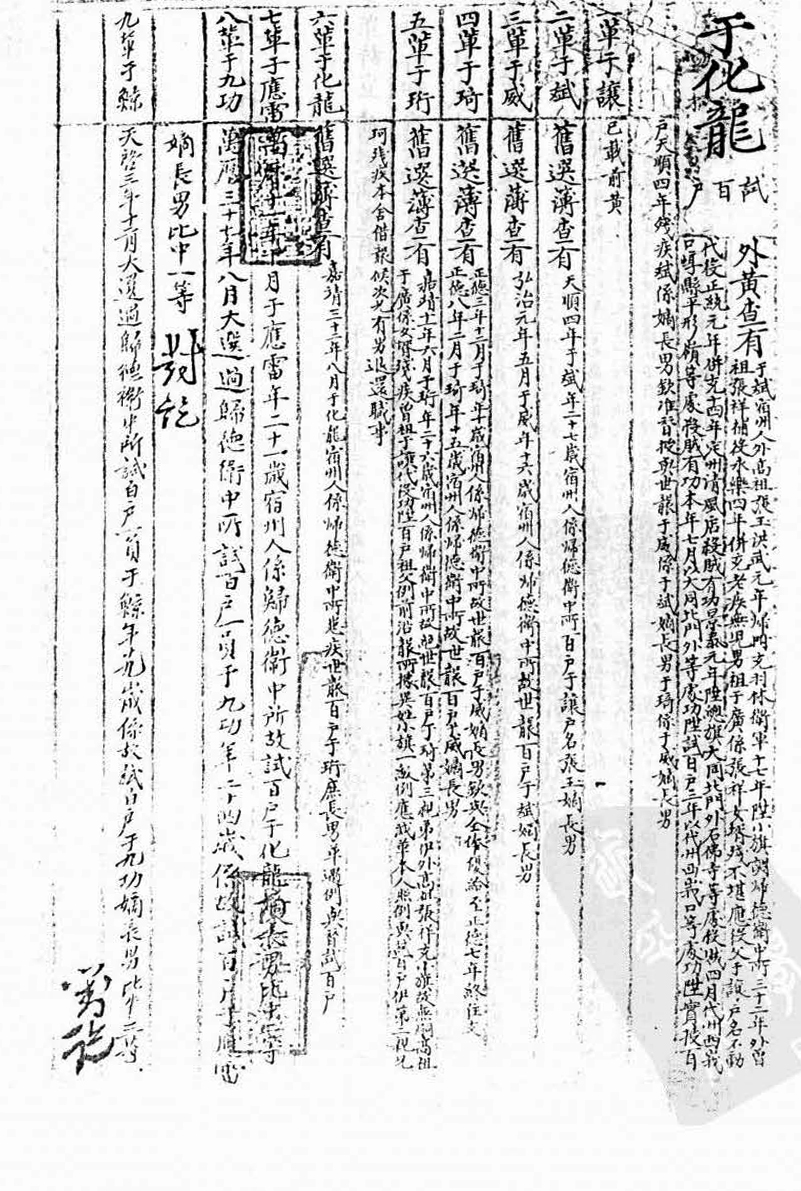 于化龍
試百戶
外黃查有
于斌宿州人外高祖張玉洪武元年歸附充羽林衛軍十七年陞小旗調歸德衛中所三十二年外曾
祖張祥補役永樂四年併充老疾無兒男祖于廣係張祥女壻殘不堪應役父于讓戶名不動
代役正統元年併充十四年定州清風店殺賊有功景泰元年陞總旗大同北門外石佛寺等處殺賊四月代州西義
口崞縣平形嶺等處殺賊有功本年七月以大同北門外等處功陞試百戶三年以代州西義口等處功陞實授百
戶天順四年殘疾斌係嫡長男欽准替授世襲于威係于斌嫡長男于琦係于威嫡長男
一輩于讓
已載前黃
二輩于斌
舊選簿查有
天順四年于斌年二十七歲宿州人係歸德衛中所百戶于讓戶名張玉嫡長男
三輩于威
舊選簿查有
弘治元年五月于威年十六歲宿州人係歸德衛中所故世襲百戶于斌嫡長男
四輩于琦
舊選簿查有
正德三年十二月于琦年十歲宿州人係歸德衛中所故世襲百戶于威嫡長男欽與全俸優給至正德七年終住支
正德八年二月于琦年十五歲宿州人係歸德衛中所故世襲百戶于威嫡長男
五輩于珩
舊選簿查有
嘉靖十年六月于珩年二十六歲宿州人係歸德衛中所故絕世襲百戶于琦第三親弟伊外高祖張祥充小旗故無嗣高祖
于廣係女壻殘疾曾祖于讓代役功陞百戶祖父例前沿襲所據異姓小旗一級例應減革本人照例與試百戶伊第二親兄
珂殘疾本舍借襲候次兄有男退還職事
六輩于化龍
舊選簿查有
嘉靖三十二年八月于化龍宿州人係歸德衛中所老疾世襲百戶于珩庶長男革遇例與替試百戶
七輩于應雷
萬曆十一年 月于應雷年二十一歲宿州人係歸德衛中所故試百戶于化龍嫡長男比中三等
八輩于九功
萬曆三十七年八月大選過歸德衛中所試百戶一員于九功年二十四歲係故試百戶于應雷
嫡長男比中一等 對訖
九輩于鯨
天啓三年十二月大選過歸德衛中所試百戶一員于鯨年 歲係故試百戶于九功嫡長男比中三等
對訖